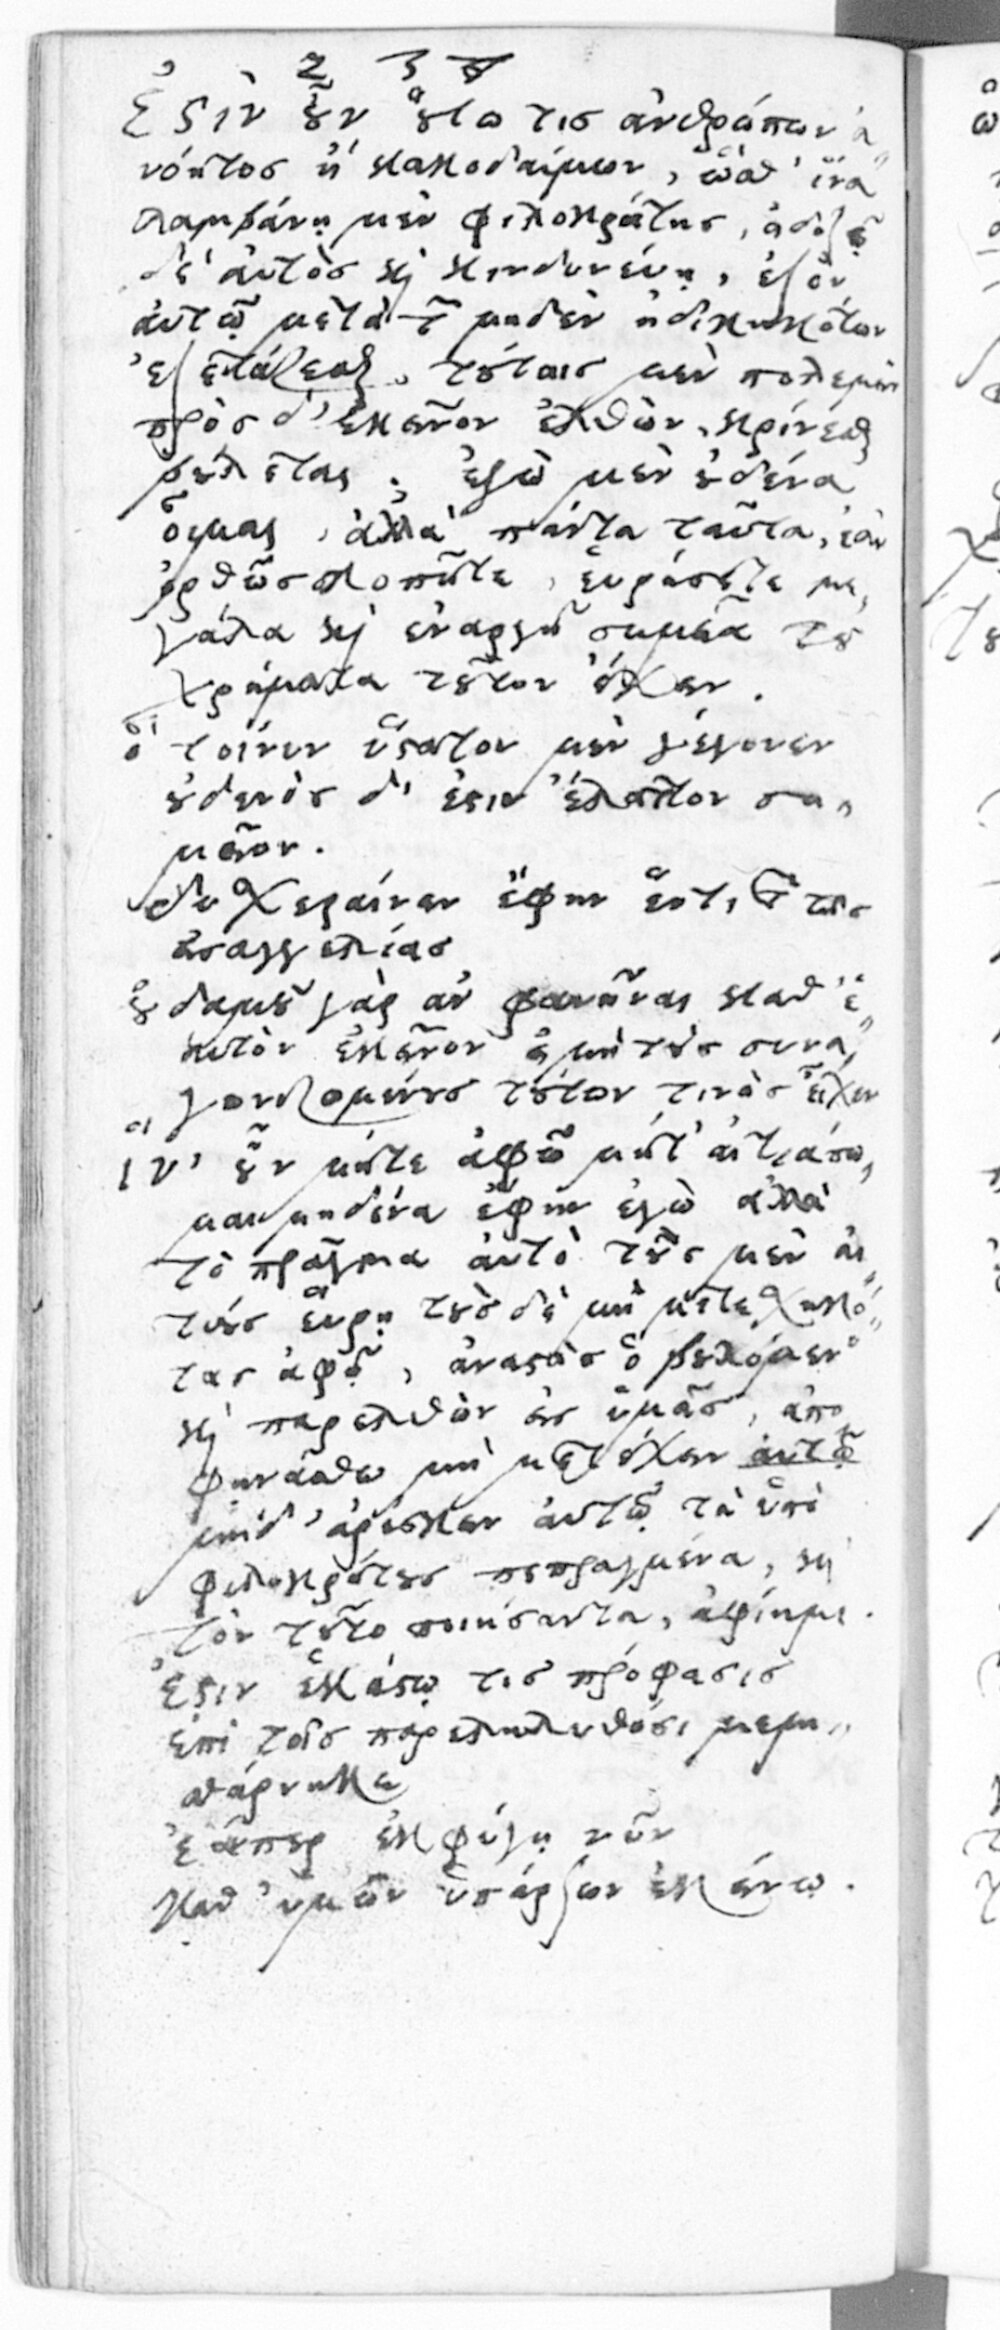 ἔστιν οὖν οὕτω τις ἀνθρώπων ἀ
νόητος ἢ κακοδαίμων, ὥσθ' ἵνα
λαμβάνῃ μὲν φιλοκράτης, ἀδοξῇ
δ' αὐτὸς καὶ κινδυνεύῃ, ἐξὸν
αὐτῷ μετὰ τῶν μηδὲν ἠδικηκότων
ἐξετάζεσθαι, τούτοις μὲν πολεμεῖν
πρὸς δ' ἐκεῖνον ἐλθὼν, κρίνεσθαι
βούλεται. ἐγὼ μὲν οὐδένα
οἶμαι, ἀλλὰ πάντα ταῦτα, ἐὰν
ὀρθῶς σκοπῆτε, εὑρήσετε με,
γάλα καὶ ἐναργῆ σημεῖα τοῦ
χρήματα τοῦτον ἔχειν.
ὃ τοίνυν ὕστατον μὲν γέγονεν
οὐδενὸς δ' ἐστιν ἔλαττον ση,
μεῖον.
δυσχεραίνειν ἔφην ἕν τι τῶν τῆς
εἰσαγγελίας
οὐδαμοῦ γὰρ ἂν φανῆναι καθ' ἑ
αυτὸν ἐκεῖνον εἰ μὴ τοὺς συνα,
γωνιζομένους τούτων τινὰς εἶχεν
ἵν' οὖν μήτε ἀφῶ μήτ' αἰτιάσω,
μαι μηδένα ἔφην ἐγὼ ἀλλὰ
τὸ πρᾶγμα αὐτὸ τοὺς μὲν αἰ
τίους εὕρῃ τοὺς δὲ μὴ μετεσχηκό,
τας ἀφῇ, ἀναστὰς ὁ βουλόμενος
καὶ παρελθὼν εἰς ὑμᾶς, ἀπο
φηνάσθω μὴ μετέχειν αὐτῷ
μηδ' ἀρέσκειν αὐτῷ τὰ ὑπὸ
φιλοκράτους πεπραγμένα, καὶ
τὸν τοῦτο ποιήσαντα, ἀφίημι.
ἔστιν ἑκάστῳ τις πρόφασις
ἐπὶ τοῖς παρεληλυθόσι μεμι,,
ἐάνπερ ἐκφύγῃ νῦν
καθ' ὑμῶν ὑπάρξων ἐκείνῳ.